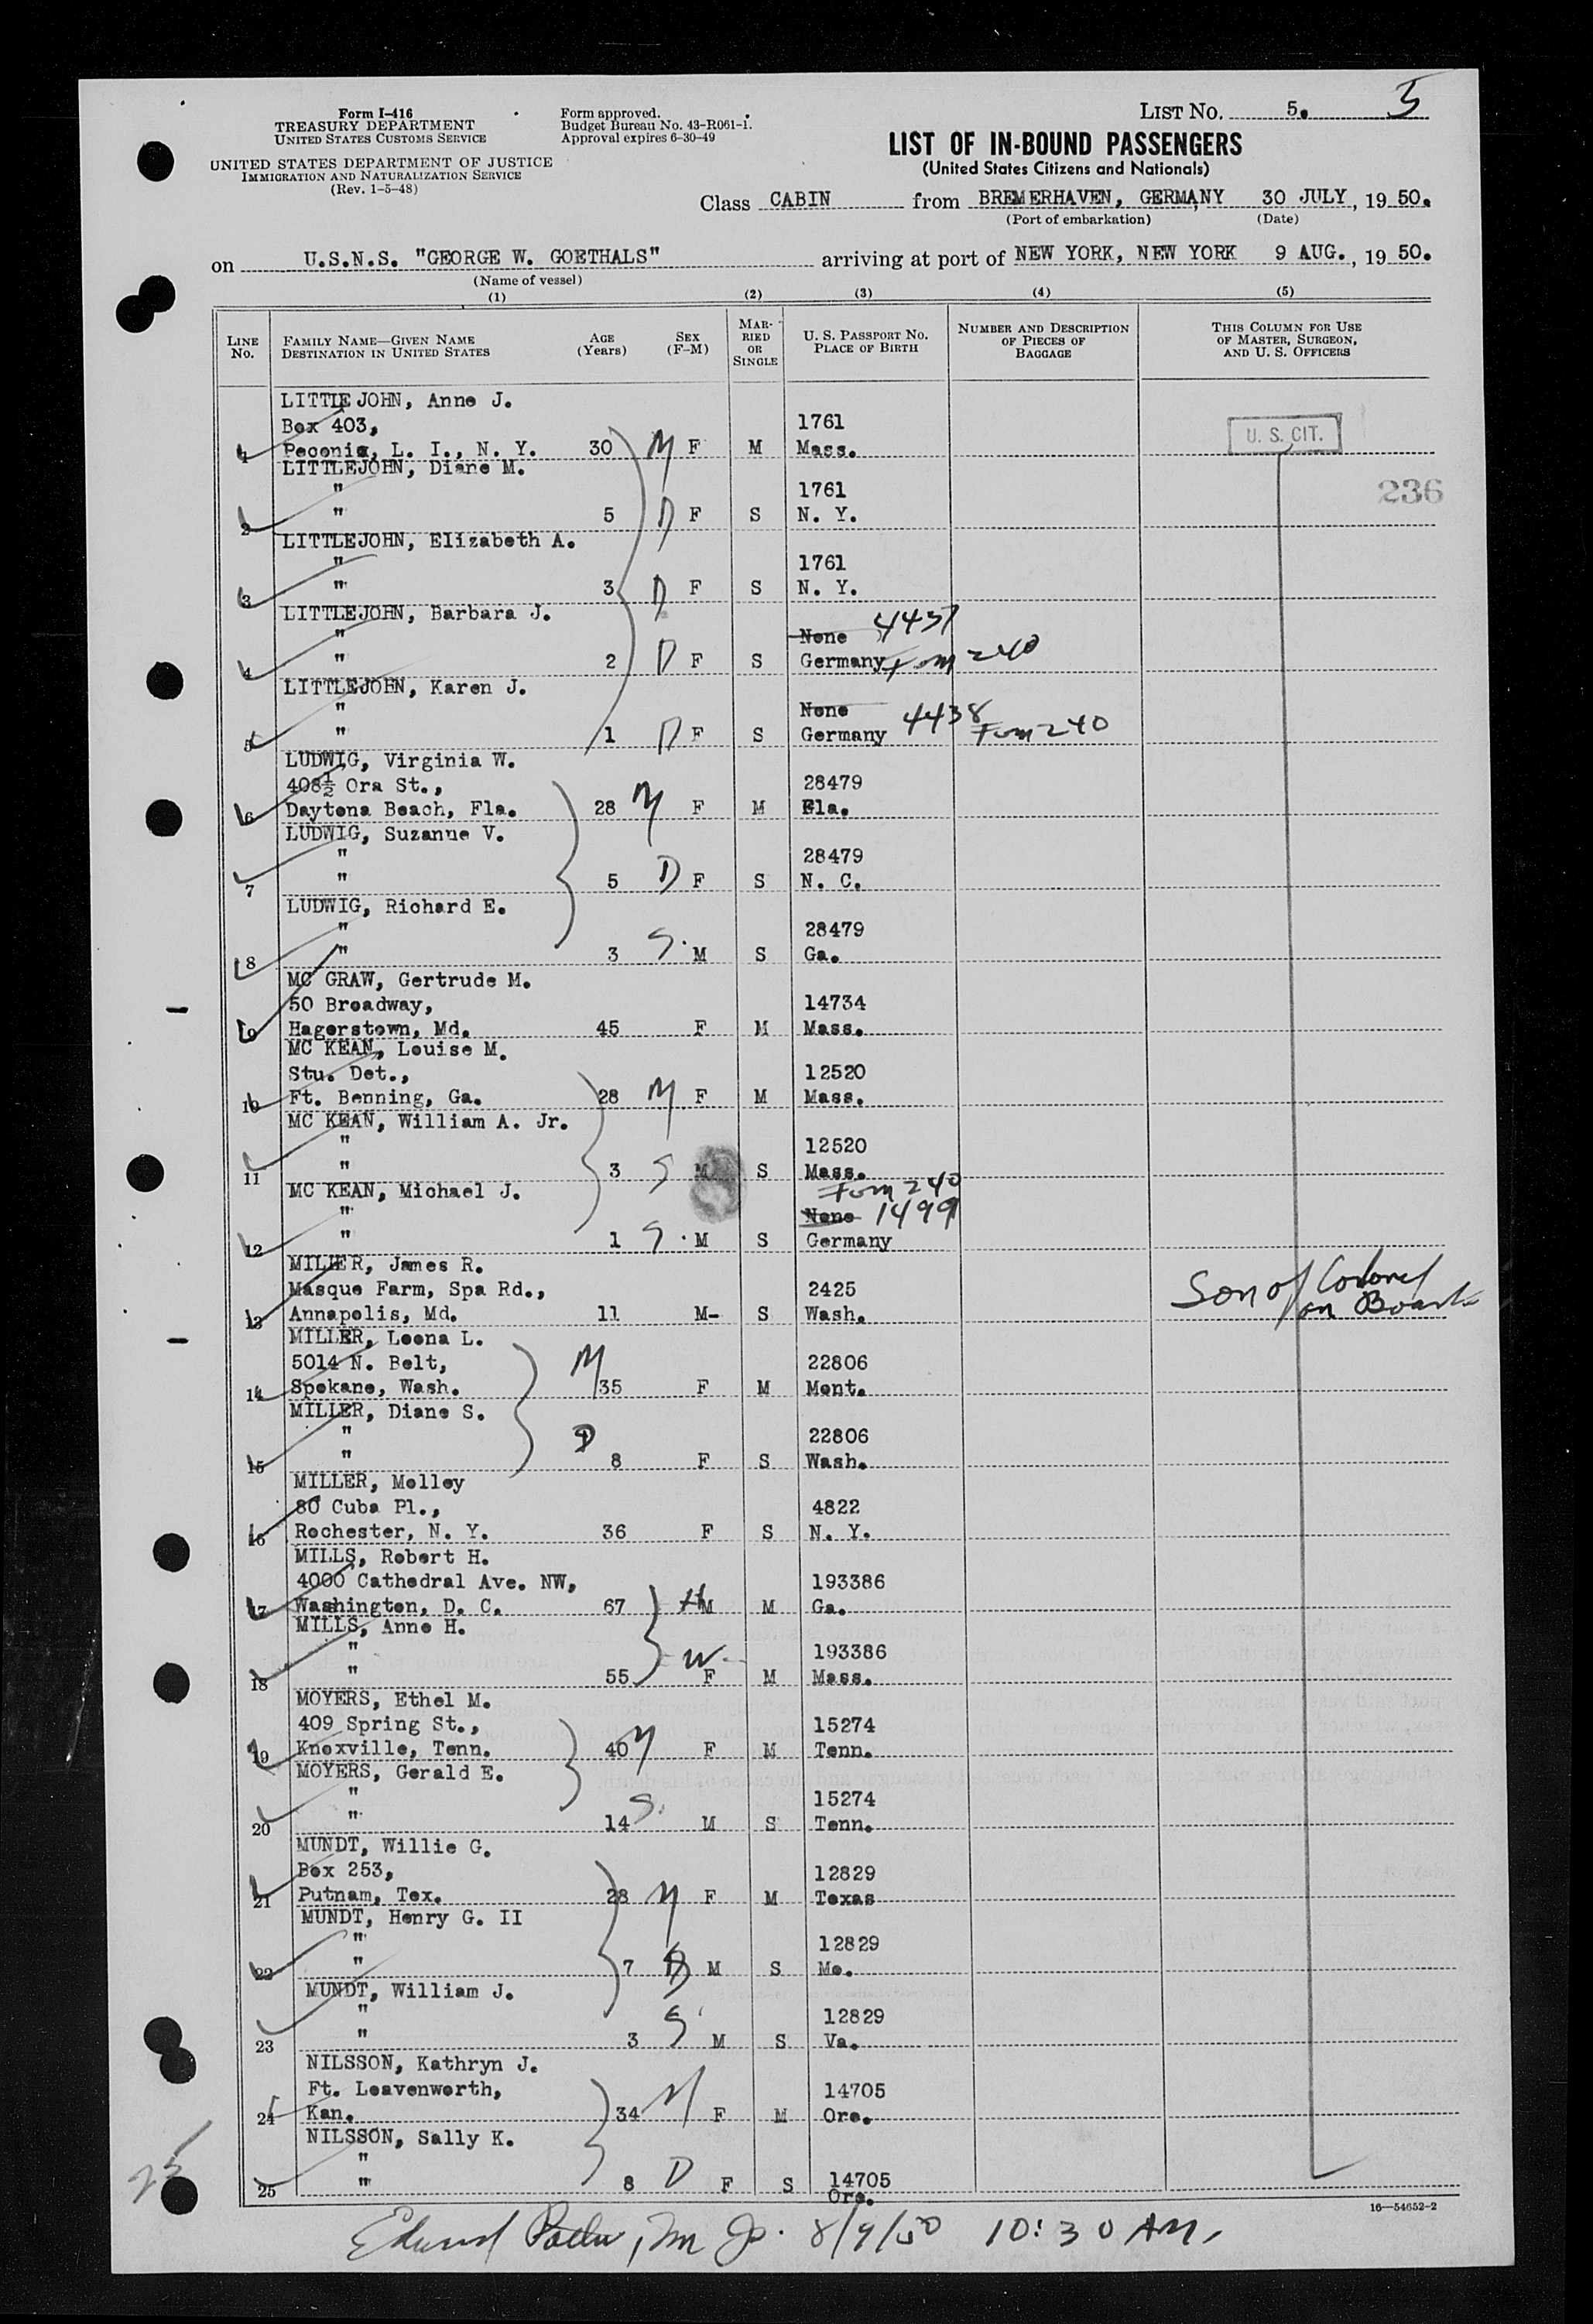 Form I-416
TREASURY DEPARTMENT
UNITED STATES CUSTOMS SERVICE
UNITED STATES DEPARTMENT OF JUSTICE
IMMIGRATION AND NATURALIZATION SERVICE
(Rev. 1-5-48)
Form approved.
Budget Bureau No. 43-R061-1.
Approval expires 6-30-49
LIST No. 5. 5
LIST OF IN-BOUND PASSENGERS
(United States Citizens and Nationals)
Class CABIN from BREMERHAVEN, GERMANY 30 JULY, 19 50.
(Port of embarkation) (Date)
on U.S.N.S. "GEORGE W. GOETHALS" arriving at port of NEW YORK, NEW YORK 9 AUG., 19 50.
(Name of vessel)
(1) (2) (3) (4) (5)
LINE No.
FAMILY NAME—GIVEN NAME
DESTINATION IN UNITED STATES
AGE (Years)
SEX (F-M)
MARRIED OR SINGLE
U. S. PASSPORT NO.
PLACE OF BIRTH
NUMBER AND DESCRIPTION OF PIECES OF BAGGAGE
THIS COLUMN FOR USE OF MASTER, SURGEON, AND U. S. OFFICERS
LITTLEJOHN, Anne J.
Box 403, 1761
1 Peconic, L. I., N. Y. 30 M F M Mass. U. S. CIT.
LITTLEJOHN, Diane M.
" 1761 236
2 " 5 D F S N. Y.
LITTLEJOHN, Elizabeth A.
" 1761
3 " 3 D F S N. Y.
LITTLEJOHN, Barbara J.
" None 4437
4 " 2 D F S Germany Form 240
LITTLEJOHN, Karen J.
" None 4438
5 " 1 D F S Germany Form 240
LUDWIG, Virginia W.
408½ Ora St., 28479
6 Daytona Beach, Fla. 28 M F M Fla.
LUDWIG, Suzanne V.
" 28479
7 " 5 D F S N. C.
LUDWIG, Richard E.
" 28479
8 " 3 S. M S Ga.
MC GRAW, Gertrude M.
50 Broadway, 14734
9 Hagerstown, Md. 45 F M Mass.
MC KEAN, Louise M.
Stu. Det., 12520
10 Ft. Benning, Ga. 28 M F M Mass.
MC KEAN, William A. Jr.
" 12520
11 " 3 S M S Mass.
MC KEAN, Michael J. Form 240
" None 1499
12 " 1 S. M S Germany
MILLER, James R.
Masque Farm, Spa Rd., 2425 Son of Colonel
13 Annapolis, Md. 11 M- S Wash. on Board
MILLER, Leona L.
5014 N. Belt, M 22806
14 Spokane, Wash. 35 F M Mont.
MILLER, Diane S.
" D 22806
15 " 8 F S Wash.
MILLER, Molley
80 Cuba Pl., 4822
16 Rochester, N. Y. 36 F S N. Y.
MILLS, Robert H.
4000 Cathedral Ave. NW, 193386
17 Washington, D. C. 67 H M M Ga.
MILLS, Anne H.
" W 193386
18 " 55 F M Mass.
MOYERS, Ethel M.
409 Spring St., 15274
19 Knoxville, Tenn. 40 M F M Tenn.
MOYERS, Gerald E.
" 15274
20 " 14 S. M S Tenn.
MUNDT, Willie G.
Box 253, 12829
21 Putnam, Tex. 28 M F M Texas
MUNDT, Henry G. II
" 12829
22 " 7 M S Mo.
MUNDT, William J.
" 12829
23 " 3 S M S Va.
NILSSON, Kathryn J.
Ft. Leavenworth, 14705
24 Kan. 34 M F M Ore.
NILSSON, Sally K.
" 14705
25 25 " 8 D F S Ore.
16—54652-2
8/9/50 10:30 AM,